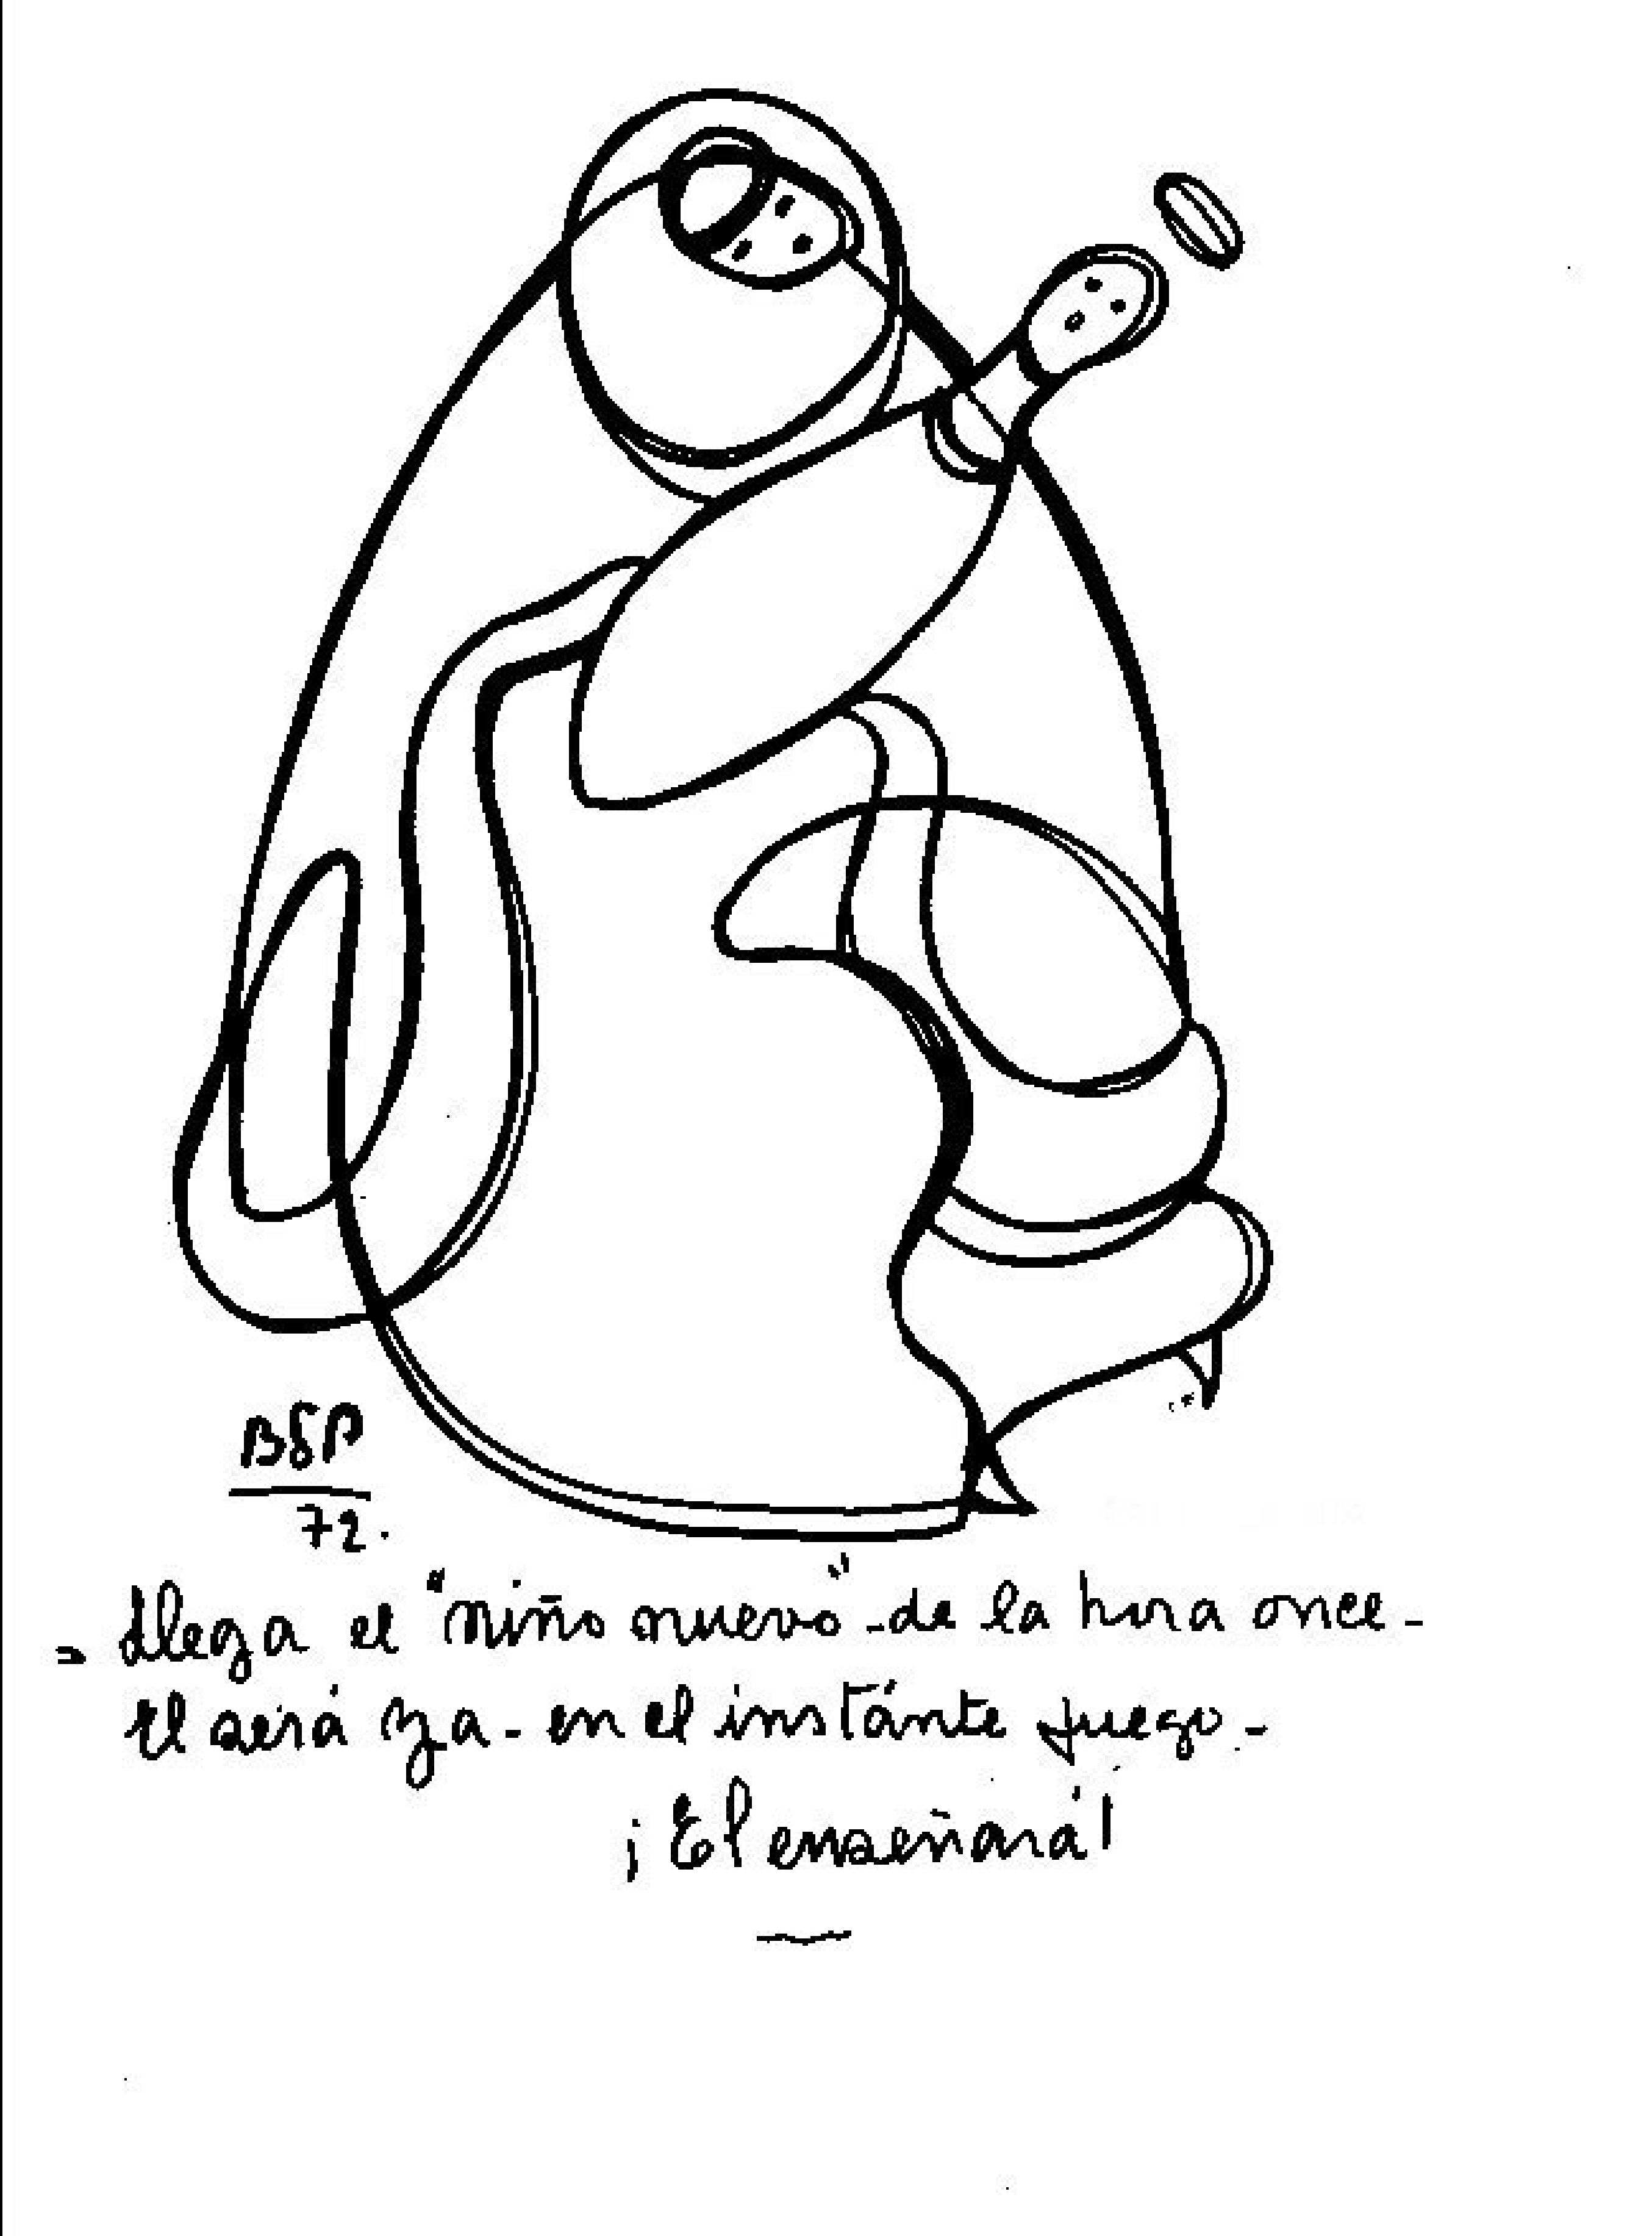 BSP
72.
= Llega el "niño nuevo" - de la hora once -
El será ya - en el instánte fuego -
¡El enseñará!